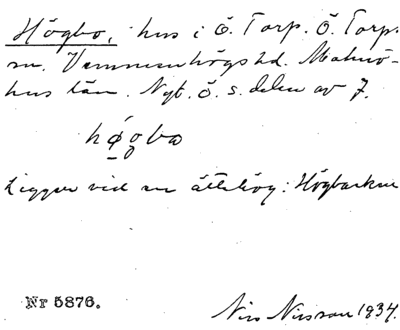 Högbo, hus i Ö. Torp. Ö. Torps
sn. Vemmenhögs hd. Malmö-
hus län. Nyb. Ö. s. delen av 7.
hǿgba
Ligger vid en ättehög: Högbacken
Nr 5876.
Nils Nilsson 1934.